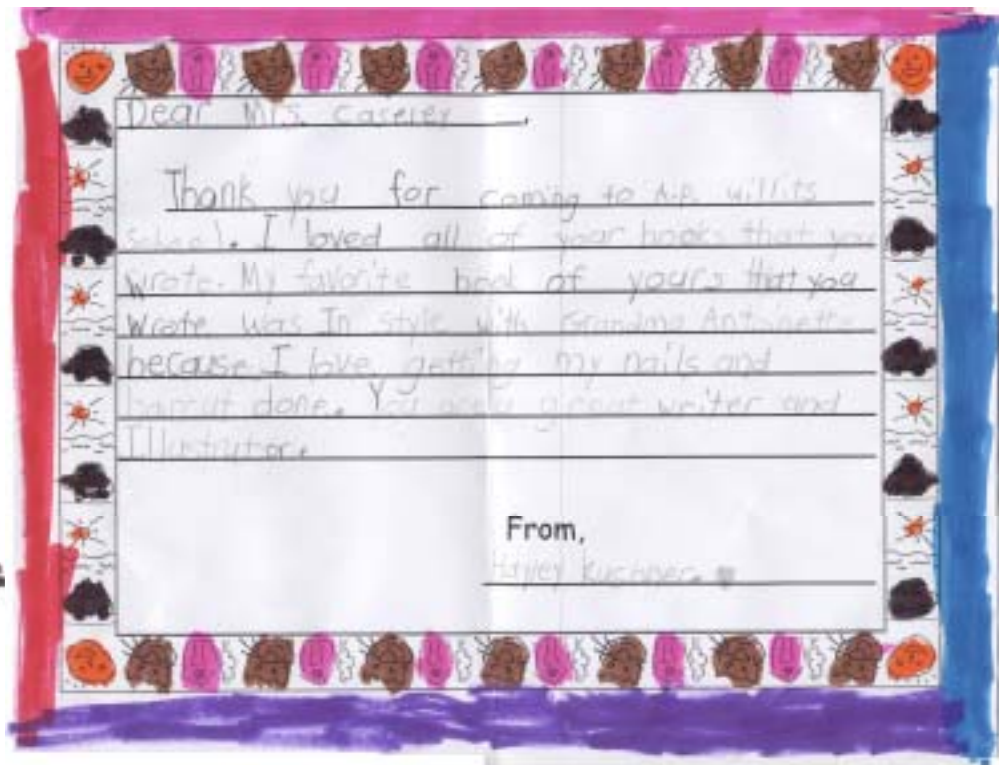 Dear Mrs. Caseley,
Thank you for coming to A.P. willits
School. I loved all of your books that you
wrote. My favorite book of yours that you
wrote was In style with Grandma Antoinette
because I love getting my nails and
haircut done. You are a great writer and
Illustrator.
From,
Hayley Kuschner.